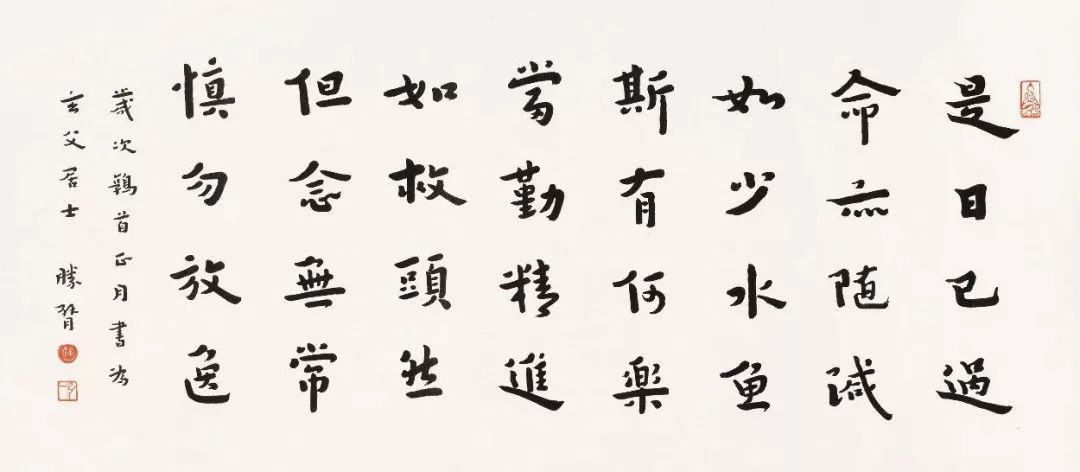 是日已過
命亦随減
如少水魚
斯有何楽
當勤精進
如救頭然
但念無常
慎勿放逸
歲次鶉首正月書為
玄父居士 勝臂